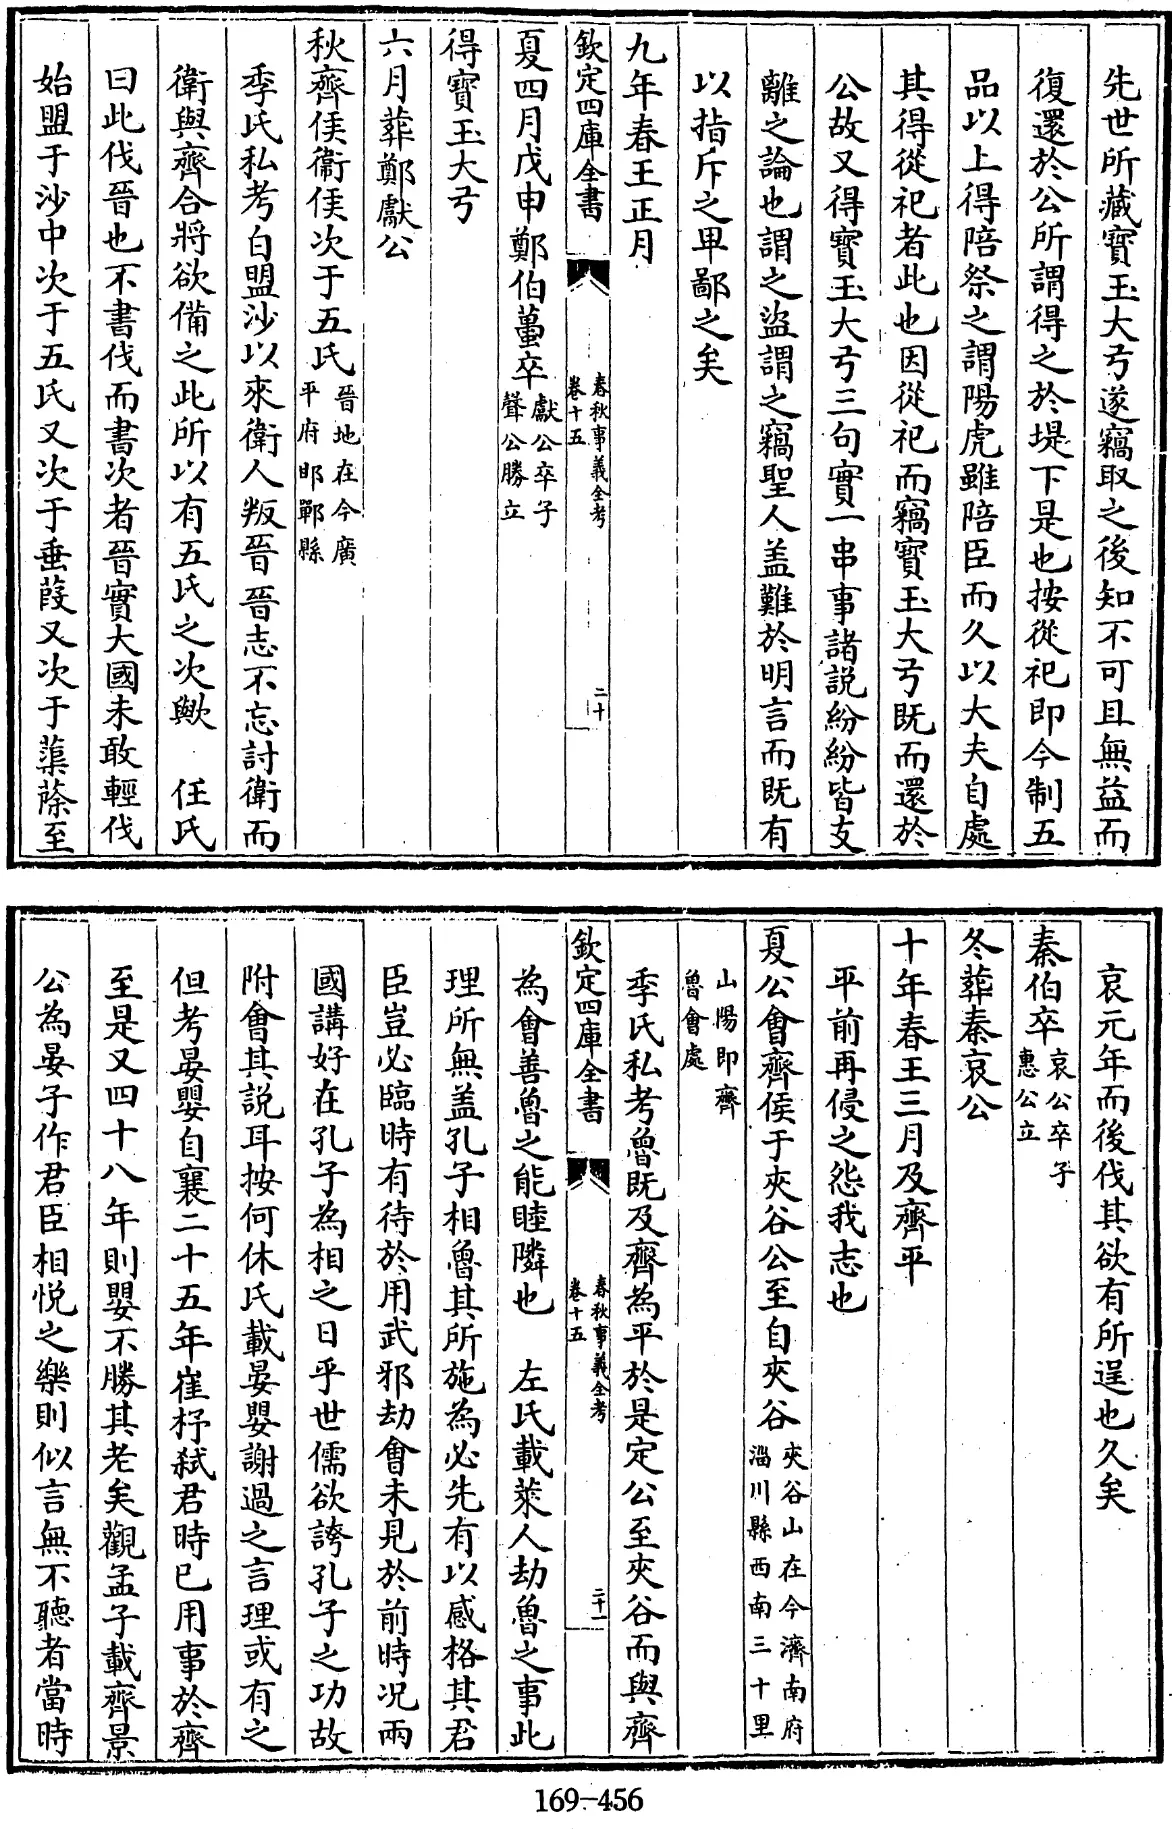 先世所藏寳玉大弓遂竊取之後知不可且無益而
復還於公所謂得之於堤下是也按從祀即今制五
品以上得陪祭之謂陽虎雖陪臣而久以大夫自處
其得從祀者此也因從祀而竊寳玉大弓既而還於
公故又得寳玉大弓三句實一串事諸說紛紛皆支
離之論也謂之盜謂之竊聖人盖難於明言而既有
以指斥之卑鄙之矣
九年春王正月
欽定四庫全書
春秋事義全考
卷十五
二十
夏四月戊申鄭伯蠆卒獻公卒子
聲公勝立
得寳玉大弓
六月葬鄭獻公
秋齊侯衞侯次于五氏晉地在今廣
平府邯鄲縣
季氏私考自盟沙以來衛人叛晉晉志不忘討衛而
衛與齊合將欲備之此所以有五氏之次歟　任氏
曰此伐晉也不書伐而書次者晉實大國未敢輕伐
始盟于沙中次于五氏又次于垂葭又次于蕖蒢至
哀元年而後伐其欲有所逞也久矣
秦伯卒哀公卒子
惠公立
冬葬秦哀公
十年春王三月及齊平
平前再侵之怨我志也
夏公會齊侯于夾谷公至自夾谷夾谷山在今濟南府
淄川縣西南三十里
山陽即齊
魯會處
季氏私考魯既及齊為平於是定公至夾谷而與齊
欽定四庫全書
春秋事義全考
卷十五
二十一
為會善魯之能睦隣也　左氏載萊人劫魯之事此
理所無盖孔子相魯其所施為必先有以感格其君
臣豈必臨時有待於用武邪劫會未見於前時况兩
國講好在孔子為相之日乎世儒欲誇孔子之功故
附會其說耳按何休氏載晏嬰謝過之言理或有之
但考晏嬰自襄二十五年崔杼弑君時已用事於齊
至是又四十八年則嬰不勝其老矣觀孟子載齊景
公為晏子作君臣相悅之樂則似言無不聽者當時
169-456